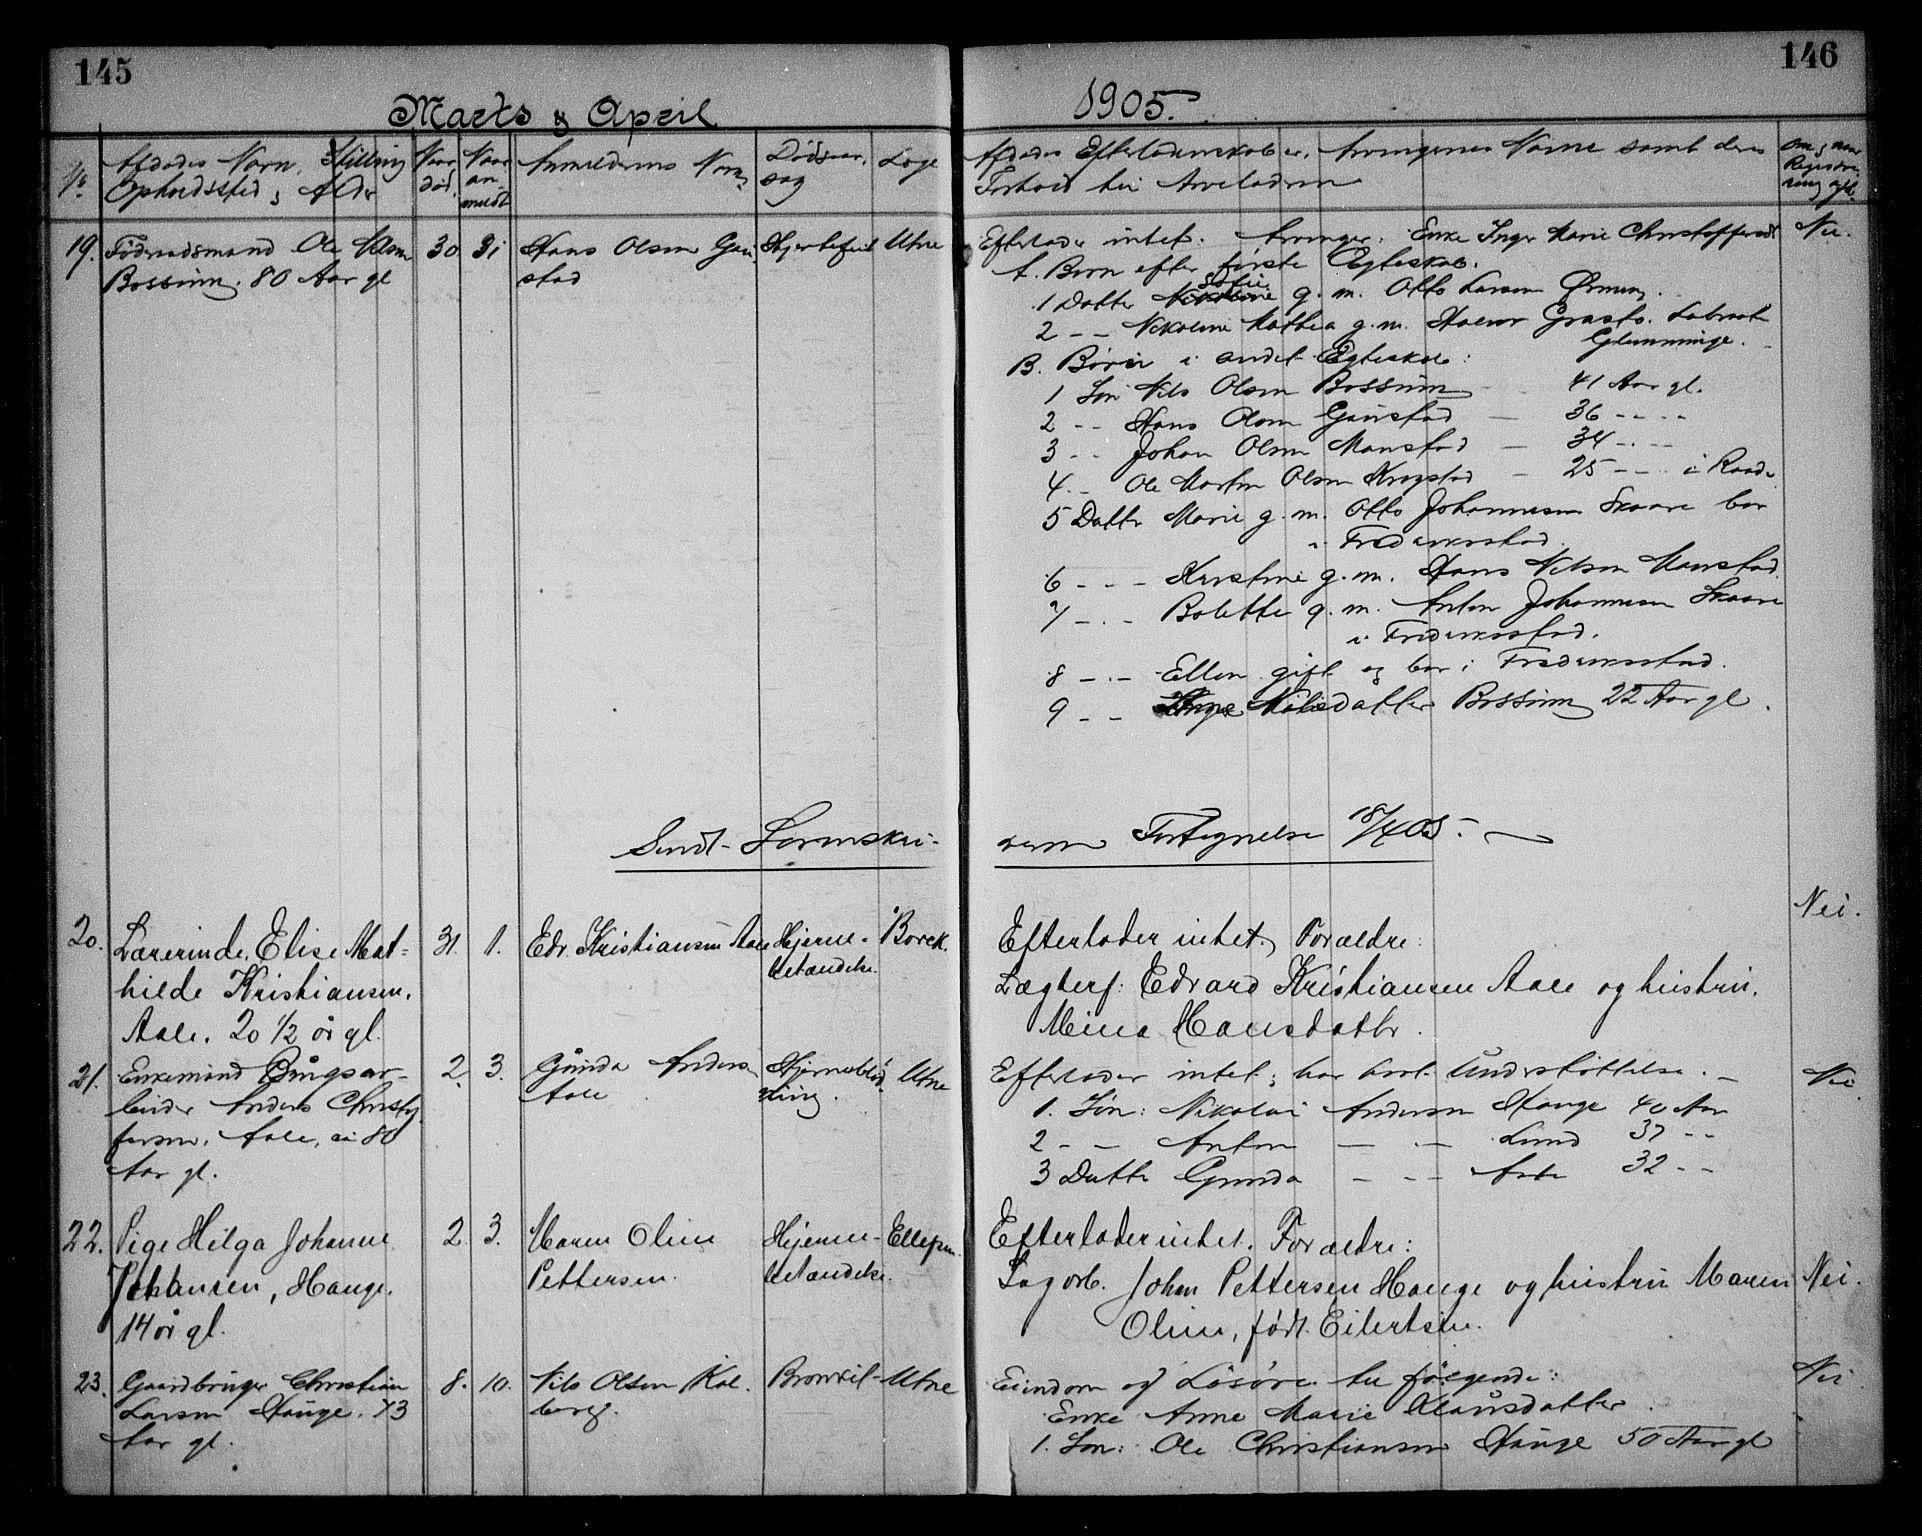 145
Marts & April
No
Afdødes Navn, Stilling
Opholdssted & Alder
Naar
død
Naar
an-
meldt
Anmelderens Navn
Dødsaar-
sag
Læge
19. Födraadsmand Ole Nilsen
Bossum. 80 Aar gl
30 31
Hans Olsen Gaustad
Hjertefeil
Utne
Sendt Sorenskri-
20. Lærerinde Elise Mat-
hilde Kristiansen.
Aale. 20 1/2 år gl.
31. 1.
Edv. Kristiansen Aale
Hjerne-
betændelse.
Borck.
21. Enkemand Bÿgsar-
beider Anders Christof
fersen. Aale, ca 80
Aar gl.
2. 3.
Günda Anders
Aale
Hjerneblød
ning.
Utne
22. Pige Helga Johanne
Johansen, Hauge.
14 år gl.
2. 3.
Maren Oline
Pettersen.
Hjerne-
betændelse.
Ellefsen.
23. Gaardbruger Christian
Larsen Hauge. 73
Aar gl.
8. 10.
Nils Olsen Kol-
berg.
Bronkit
Utne
146
1905.
Afdødes Efterladenskaber, Arvingernes Navne samt deres
Forhold til Arveladeren
Om & naar
Registre-
ring
Efterlader intet. Arvinger: Enke Inger Marie Christoffersdt Nei.
A. Børn efter første Ægteskab.
1 Datter Sofie g. m. Otto Larsen
2 - - Nikoline Mathea g. m. Halvor
Glemminge.
B. Børn i andet Ægteskab:
1 Søn Nils Olsen Bossum 41 Aar gl.
2 - - Hans Olsen Gaustad — 36 - - - -
3 - - Johan Olsen Manstad — 34 - - - -
4 - - Ole Martin Olsen Krogstad — 25 - - i Raade
5 Datter Marie g. m. Otto Johannesen Skaare bor
i Fredriksstad.
6 - - - Kristine g. m. Hans Nilsen Manstad
7 - - - Bolette g. m. Anton Johannesen Skaare
i Fredriksstad.
8 - - - Ellen gift og bor i Fredriksstad.
9 - - Olsdatter Bossum 22 Aar gl.
veren Fortegnelse 18/4 05.
Nei.
Efterlader intet. Forældre:
Lægterf: Edvard Kristiansen Aale og hustru,
Mina Hansdatter.
Efterlader intet; har havt Understøttelse. - Nei
1. Søn: Nikolai Andersen Hauge 40 Aar
2 - - Anton — - — Lund 37 - -
3 Datter Gunda — - - Aale 32 - -
Efterlader intet. Forældre:
Sagarb. Johan Pettersen Hauge og hustru Maren Nei.
Oline, født Eilertsen.
Eiendom og Løsøre til følgende: Nei
Enke Anne Marie Klausdatter.
1. Søn: Ole Christiansen Hauge 50 Aar gl